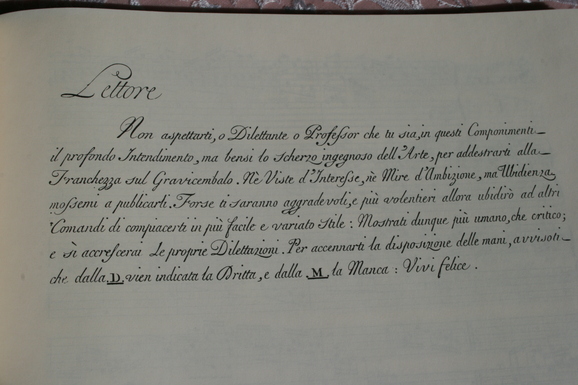 Lettore
Non aspettarti, o Dilettante o Profeſsor che tu sia, in questi Componimenti
il profondo Intendimento, ma bensì lo scherzo ingegnoso dell'Arte, per addestrarti alla
Franchezza sul Gravicembalo. Nè Viste d'Intereſse, nè Mire d'Ambizione, ma Ubidienza
moſsemi a publicarli. Forse ti saranno aggradevoli, e più volentieri allora ubidirò ad altri
Comandi di compiacerti in più facile e variato Stile: Mostrati dunque più umano, che critico;
e sì accreſcerai le proprie Dilettazioni. Per accennarti la disposizione delle mani, avvisoti
che dalla D vien indicata la Dritta, e dalla M la Manca: Vivi felice.